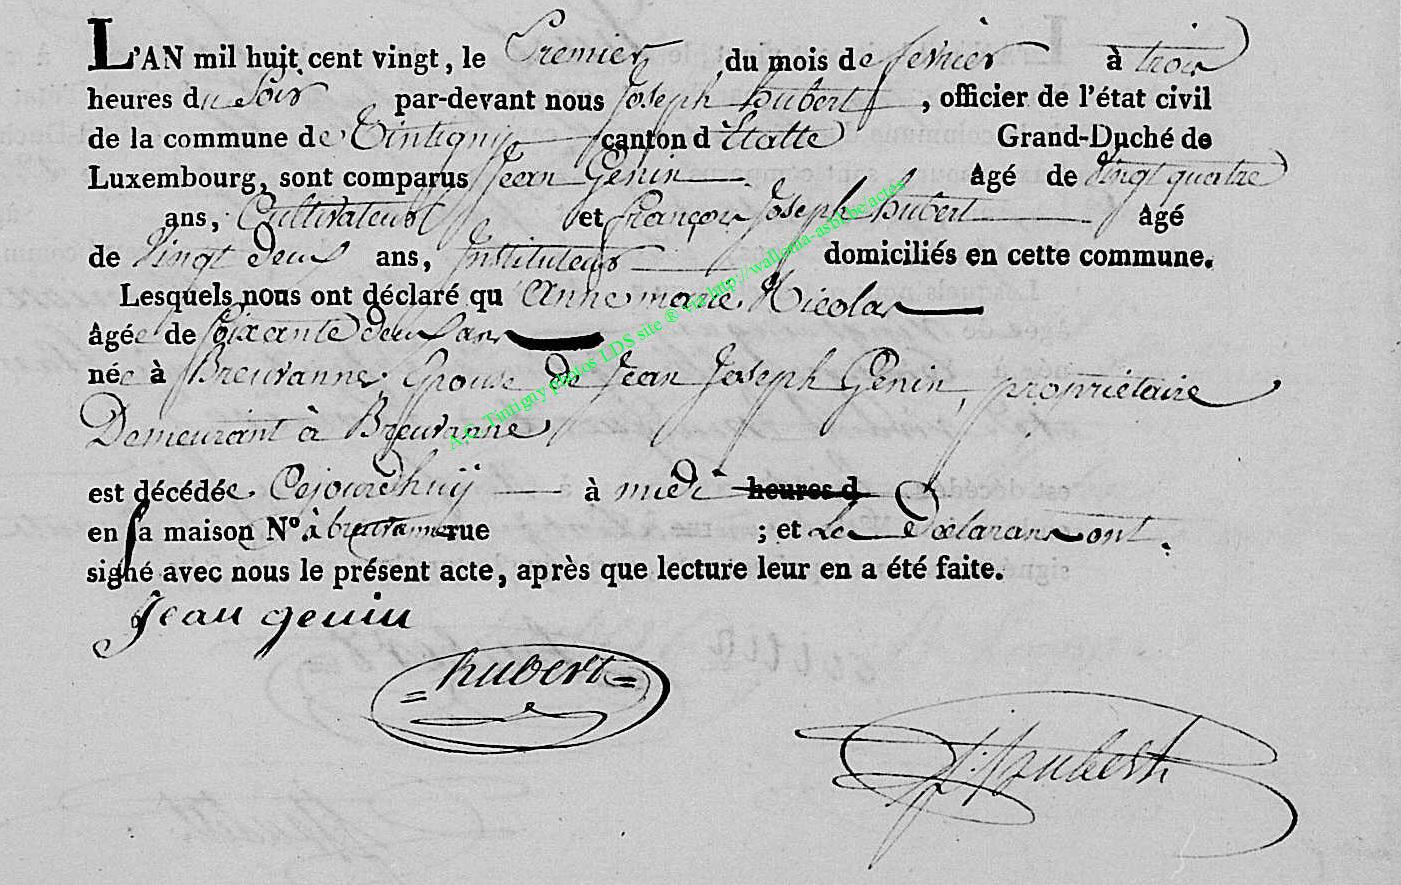 L'AN mil huit cent vingt, le Premier du mois de fevrier à trois
heures du Soir par-devant nous Joseph hubert, officier de l'état civil
de la commune de Tintigny canton d'Etalle Grand-Duché de
Luxembourg, sont comparus Jean Genin Agé de vingt quatre
ans, Cultivateur et françois Joseph hubert âgé
de vingt deux ans, Instituteur domiciliés en cette commune.
Lesquels nous ont déclaré qu'Anne marie Nicolas
âgée de soixante deux ans
née à Breuvanne Epouse de Jean Joseph Genin, propriétaire
Demeurant à Breuvanne
est décédée Cejourdhuy à midi heures d
en sa maison N.º à breuvanne rue ; et les Déclarans ont
signé avec nous le présent acte, après que lecture leur en a été faite.
Jean genin
hubert
J: hubert
A.C. Tintigny photos LDS site ® via http://wallonia-asbl.be/actes